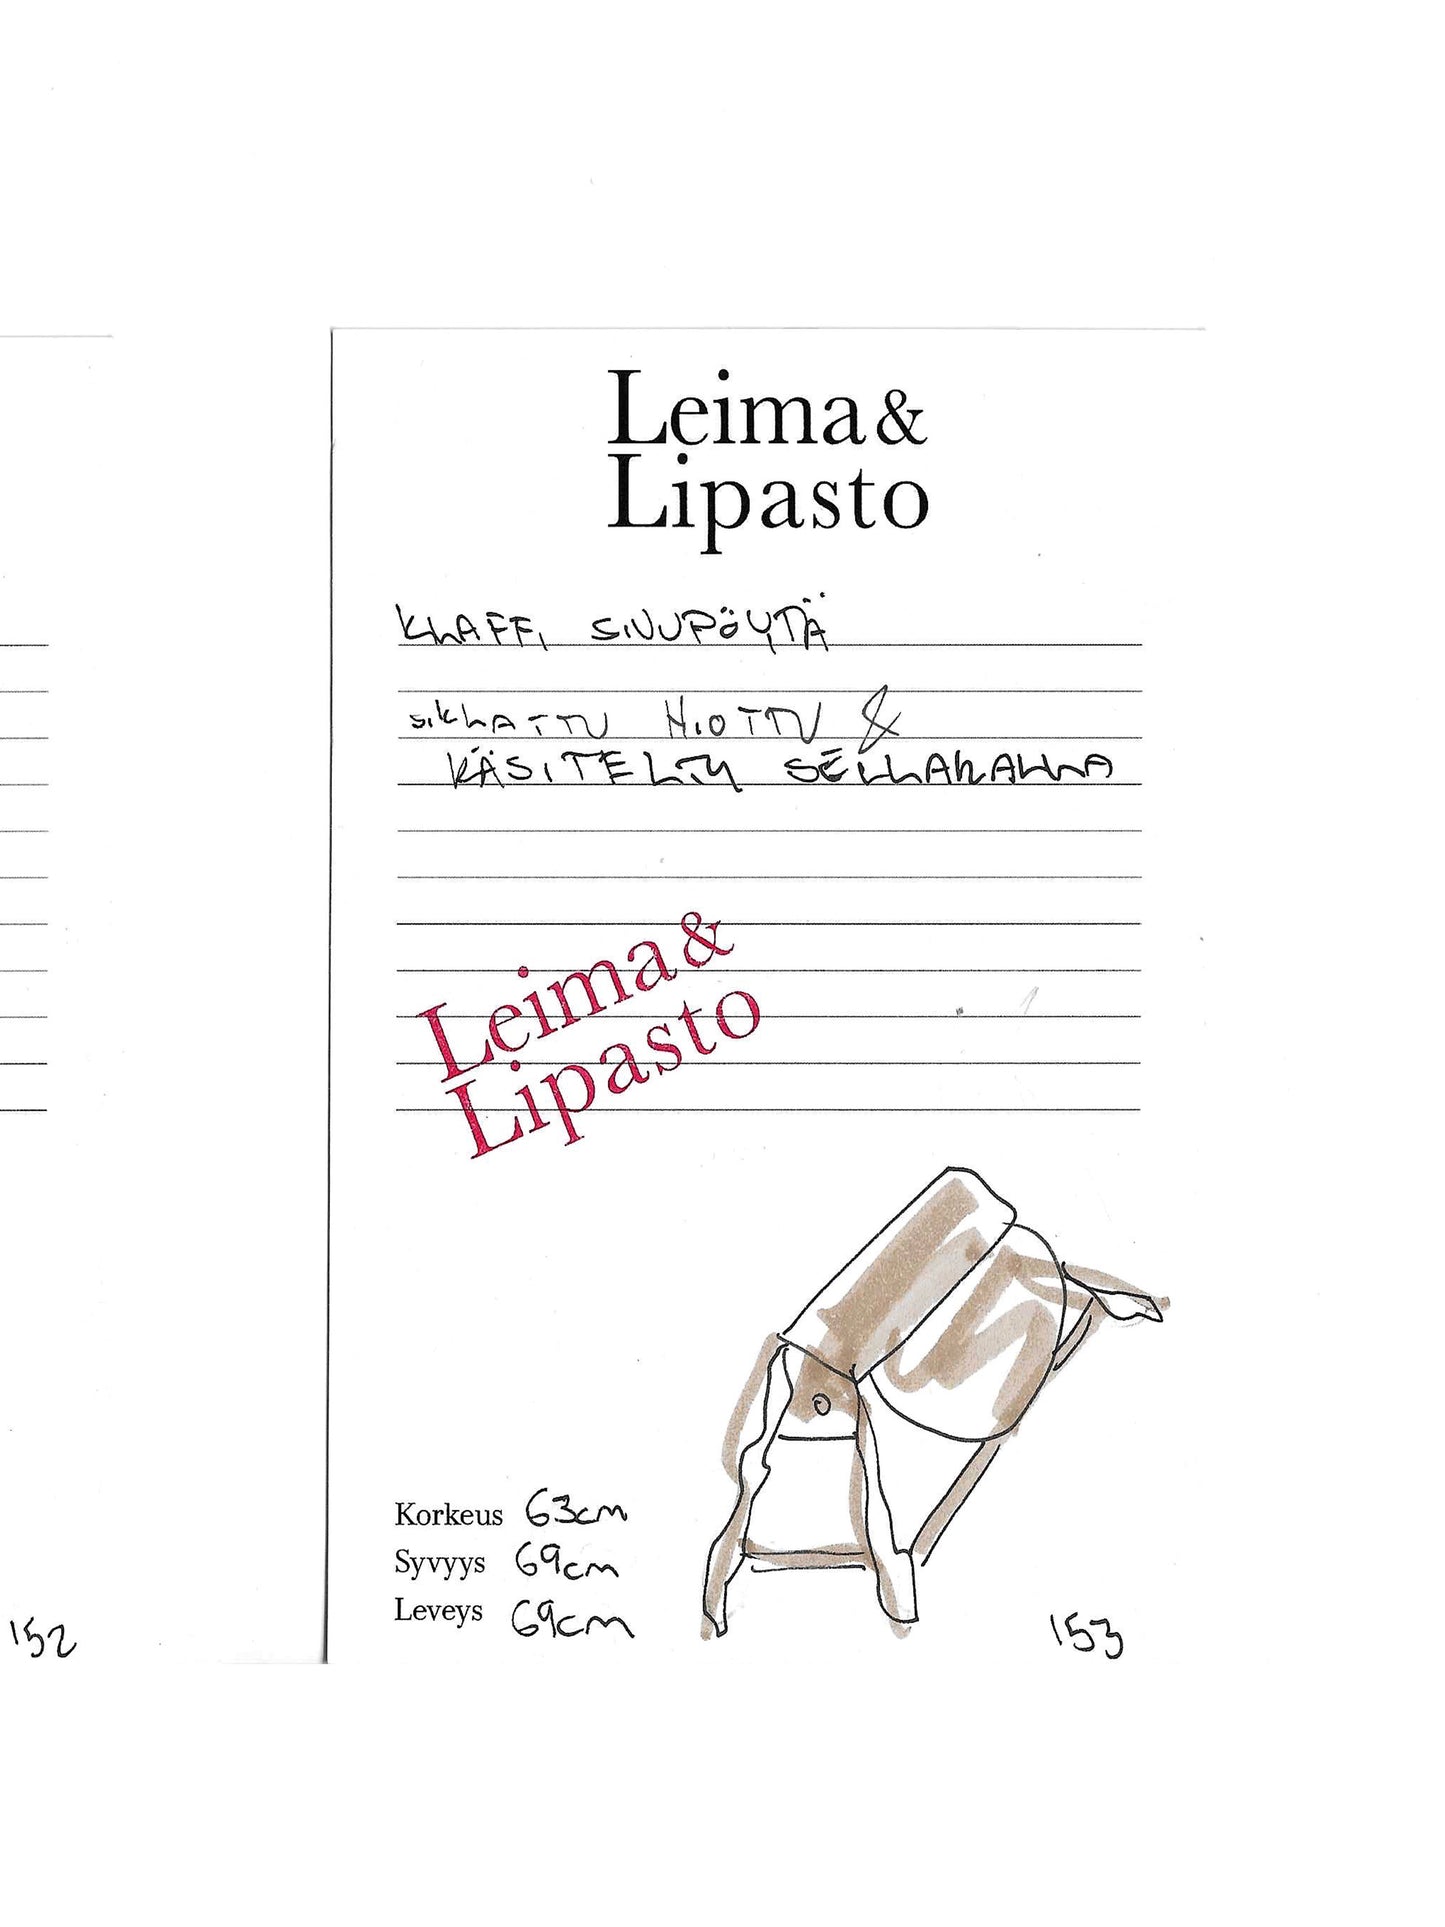 Leima &
Lipasto
KLAFFI SIVUPÖYTÄ
SIKLATTU HIOTTU &
KÄSITELTY SELLAKALLA
Leima &
Lipasto
Korkeus 63cm
Syvyys 69cm
Leveys 69cm
152
153